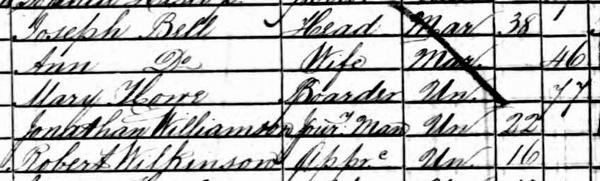 Joseph Bell Head Mar 38 1
Ann Do Wife Mar. 46
Mary Howe Boarder Un. 77
Jonathan Williamson Jour. Man Un 22
Robert Wilkinson Appre Un 16